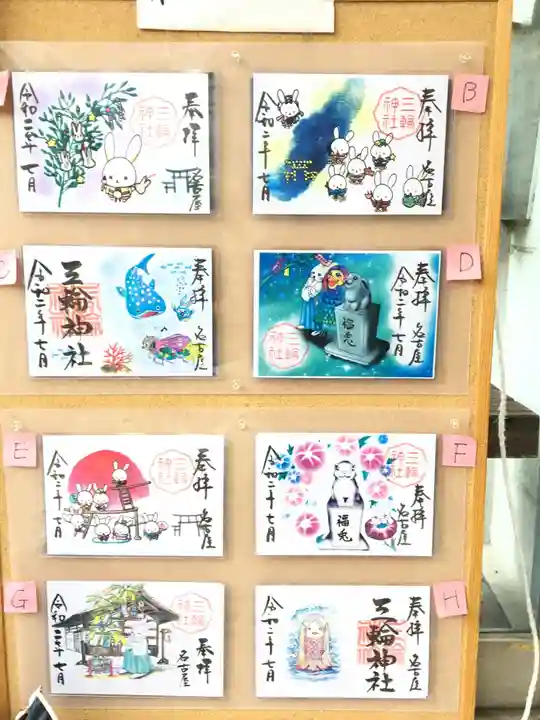 奉拝
名古屋
三輪神社
令和二年七月
B
奉拝
名古屋
三輪神社
令和二年七月
C
奉拝
名古屋
三輪神社
令和二年七月
D
奉拝
名古屋
令和二年七月
三輪神社
福兎
E
奉拝
名古屋
三輪神社
令和二年七月
F
奉拝
名古屋
三輪神社
令和二年七月
福兎
G
奉拝
名古屋
三輪神社
令和二年七月
H
奉拝
名古屋
三輪神社
令和二年七月